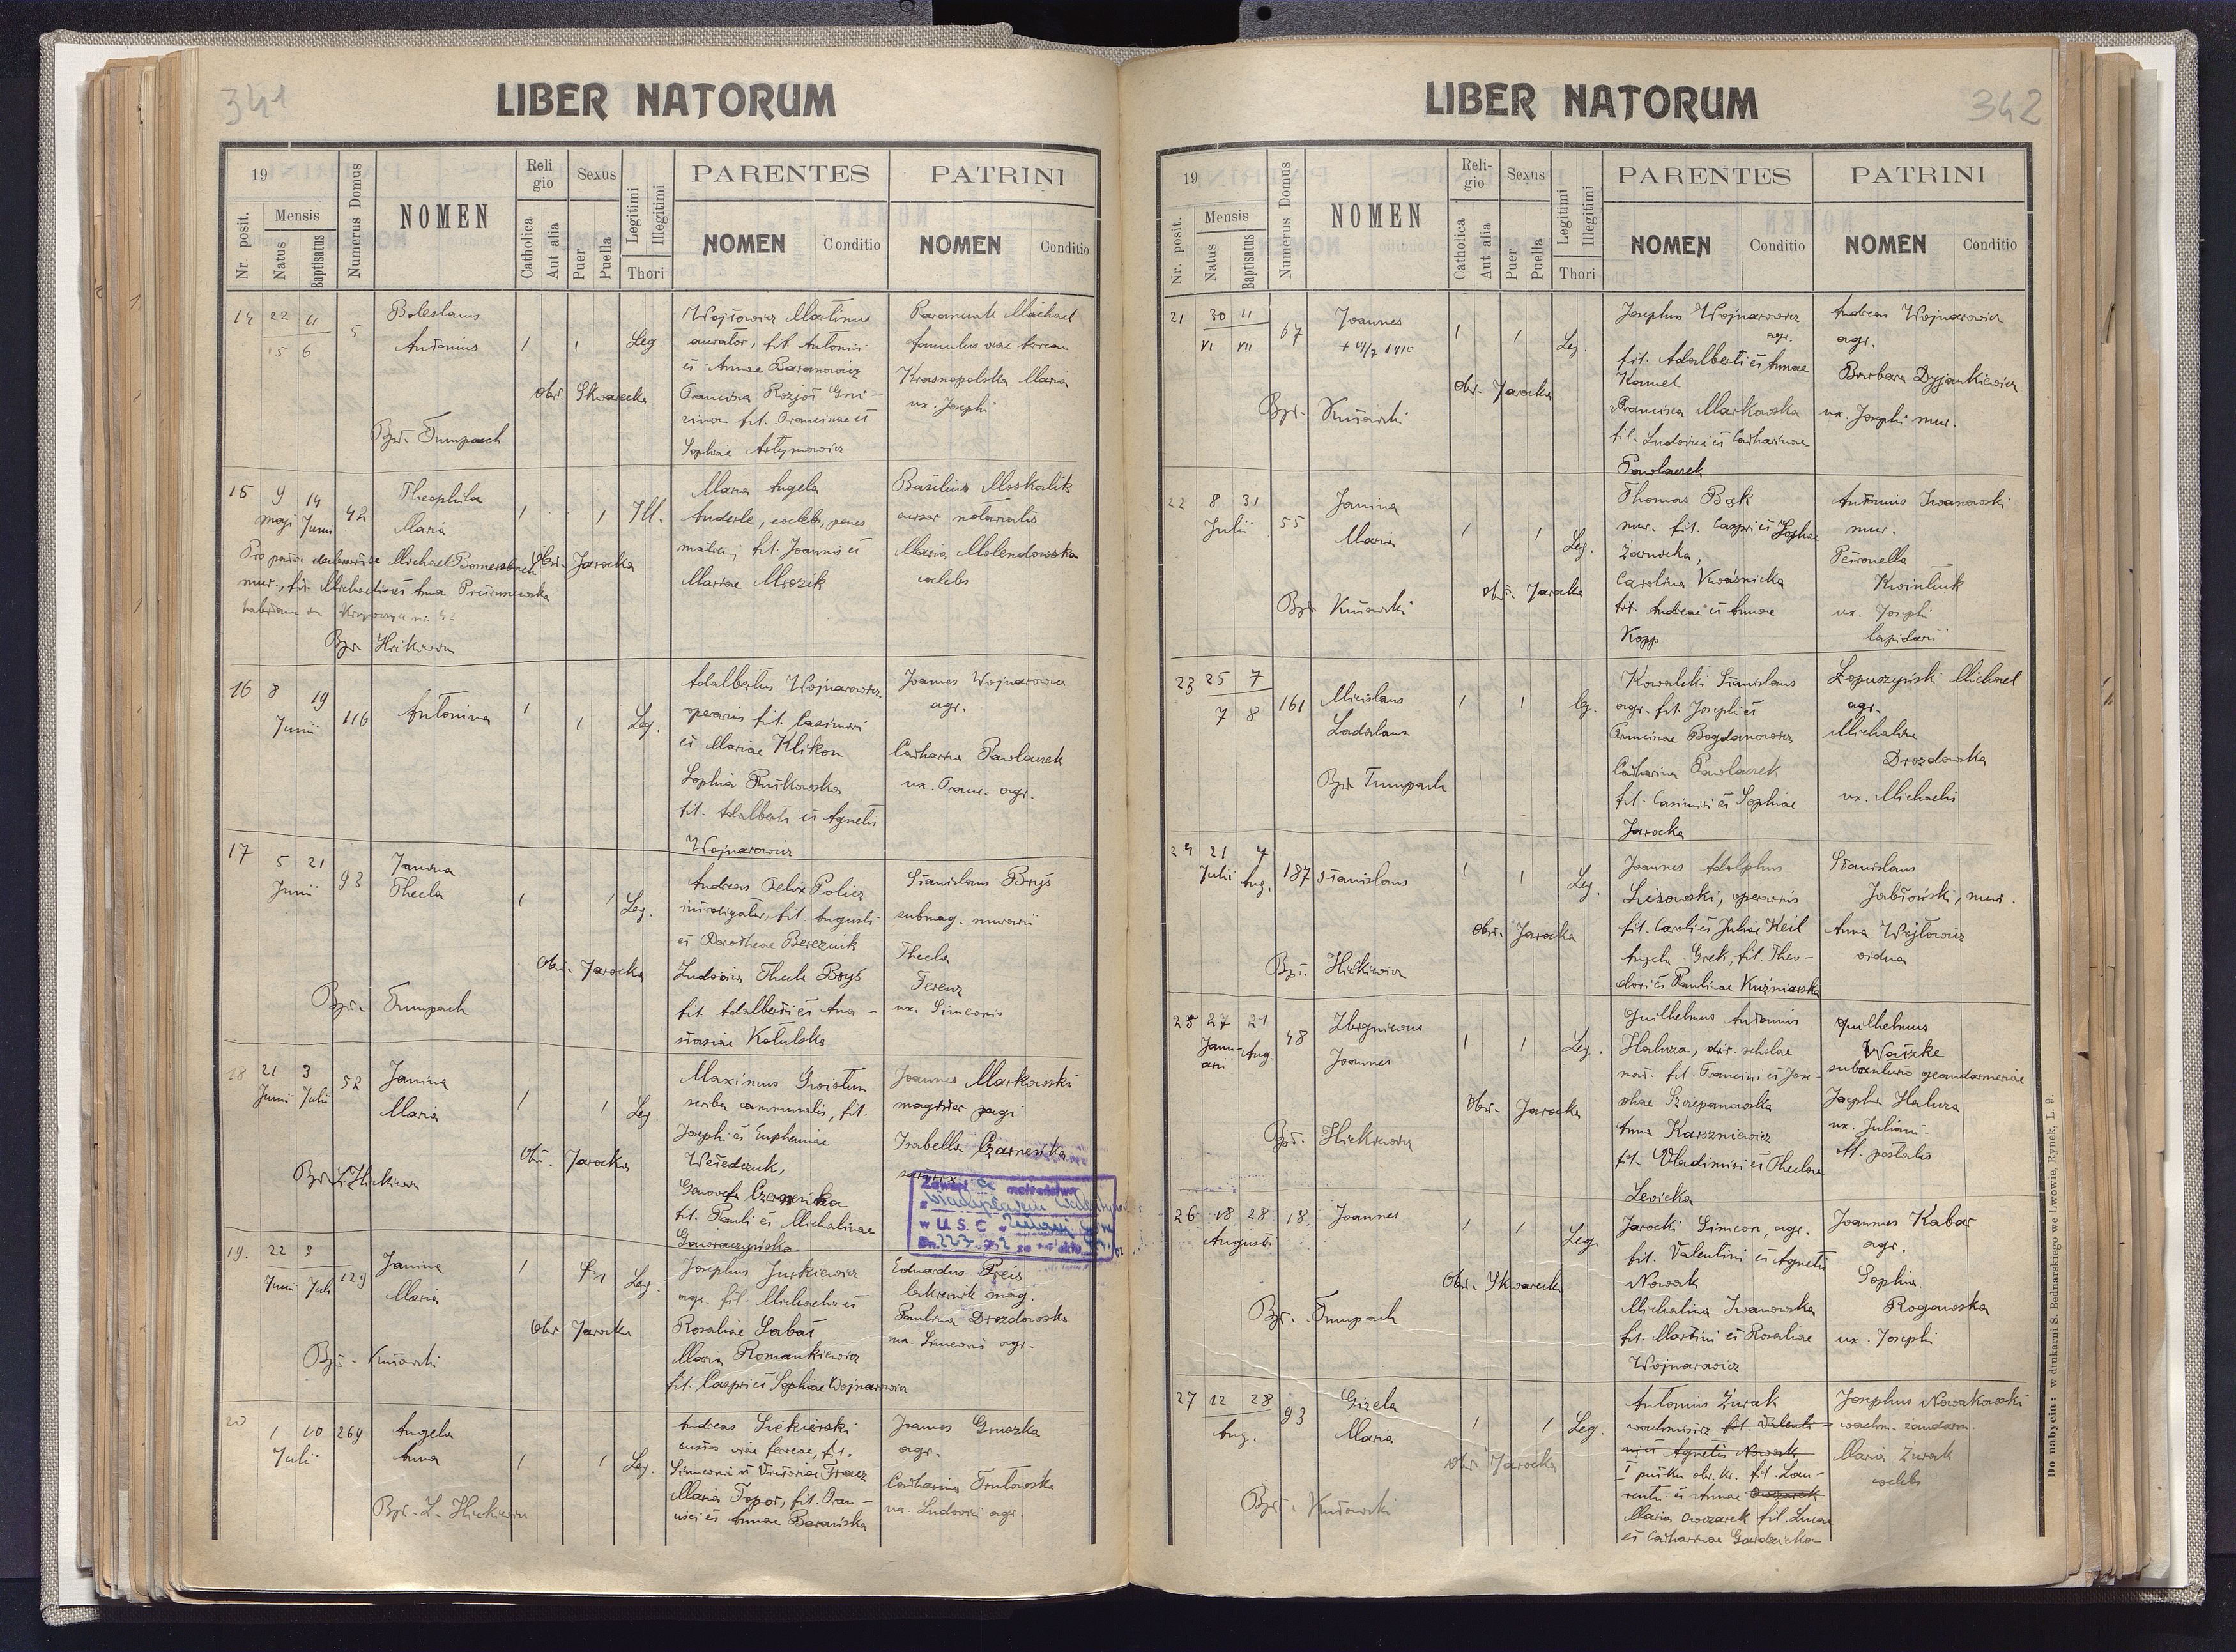 341
LIBER NATORUM
19
Nr posit.
Mensis
Natus
Baptisatus
Numerus Domus
NOMEN
Religio
Catholica
Aut alia
Sexus
Puer
Puella
Legitimi
Illegitimi
Thori
PARENTES
NOMEN
Conditio
PATRINI
NOMEN
Conditio
14 22 11 5 Boleslaus
15 6 Antonius 1 1 Leg
Wojtowicz Martinus
aurator, fil. Antonii
et Annae Baranowicz
Francisca
fil. Francisci et
Sophiae Artymowicz
Michael
famulus viae ferreae
Krasnopolska Maria
ux. Josephi
obst. Skwarecka
Bpt. Trumpach
15 9 14 42 Theophila
maji Junii Maria 1 1 Ill.
Maria Angela
Anderle, coelebs, penes
matrem, fil. Joannis et
Mariae Mrozik
Basilius Moskalik
cursor notarialis
Maria Molendowska
coelebs
obst. Jarocka
Michael
mur., fil. Michaelis et Anna
Bpt. Hickiewicz
16 8 19 116 Antonina 1 1 Leg.
Junii
Adalbertus Wojnarowicz
operarius fil. Casimiri
et Mariae Klikon
Sophia Rutkowska
fil. Adalberti et Agnetis
Wojnarowicz
Joannes Wojnarowicz
agr.
Catharina Pawlaczek
ux. Franc. agr.
17 5 21 93 Janina
Junii Thecla 1 1 Leg.
Andreas Felix Policz
introligator, fil. Augusti
et Dorotheae Bereznik
Ludovica Thecla Bryś
fil. Adalberti et Ana-
stasiae Kotulska
Stanislaus Bryś
submag. murarii
Thecla
Ferenz
ux. Simeonis
obst. Jarocka
Bpt. Trumpach
18 21 3 52 Janina
Junii Julii Maria 1 1 Leg.
Maximus
scriba communalis, fil.
Josephi et Euphemiae
Genovefa Czarnecka
fil. Pauli et Michalinae
Gawraczyńska
Joannes Markowski
magister pagi
Isabella Czarnecka
obst. Jarocka
Bpt. L. Hickiewicz
w U S C
19. 22 3 129 Janina 1 1 Leg.
Junii Julii Maria
Josephus Jurkiewicz
agr. fil. Michaelis et
Rosaliae Sorbat
Maria Romankiewicz
fil. Caspri et Sophiae Wojnarowicz
Eduardus Preis
lakiernik mag.
Paulina Drozdowska
ux. Simeonis agr.
obst Jarocka
Bpt. Kutowski
20 1 10 269 Angela
Julii Anna 1 1 Leg.
Andreas Siekierski
custos viae ferreae, fil.
Simeonis et Victoriae Tracz
Maria Topor, fil. Fran-
cisci et Annae Barańska
Joannes Gruszka
agr.
Catharina Trutowska
ux. Ludovici agr.
Bpt. L. Hickiewicz
342
LIBER NATORUM
19
Nr. posit.
Mensis
Natus
Baptisatus
Numerus Domus
NOMEN
Religio
Catholica
Aut alia
Sexus
Puer
Puella
Legitimi
Illegitimi
Thori
PARENTES
NOMEN
Conditio
PATRINI
NOMEN
Conditio
21 30 11 67 Joannes 1 1 Leg.
VI VII
Josephus Wojnarowicz
agr.
fil. Adalberti et Annae
Kamel
Francisca Markowska
fil. Ludovici et Catharinae
Pawlaczek
Andreas Wojnarowicz
agr.
Barbara Dyjankiewicz
ux. Josephi mur.
obst. Jarocka
Bpt. Kutowski
22 8 31 55 Janina
Julii Maria 1 1 Leg.
Thomas Bąk
mur. fil. Caspri et Sophiae
Żarnicka,
Carolina Kwaśnicka
fil. Andreae et Annae
Kopp
Antonius Iwanowski
mur.
Petronella
Kwintiuk
ux. Josephi
lapidarii
obst. Jarocka
Bpt Kutowski
23 25 7 161 Micislaus 1 1 leg.
7 8 Ladislaus
Kowalski Stanislaus
agr. fil. Josephi et
Francisae Bogdanowicz
Catharina Pawlaczek
fil. Casimiri et Sophiae
Jarocka
Łopuszyński Michael
agr.
Michalina
Drozdowska
ux. Michaelis
Bpt Trumpach
24 21 7 187 Stanislaus 1 1 Leg.
Julii Aug.
Joannes Adolphus
Lisowski, operarius
fil. Caroli et Juliae Keil
Angela Grek, fil. Theo-
dori et Paulinae Kuźniarska
Stanislaus
Jabłoński, mur.
Anna Wojtowicz
vidua
obst. Jarocka
Bpt. Hickiewicz
25 27 21 48 Zbigniewus
Januarii Aug. Joannes 1 1 Leg.
Guilhelmus Antonius
Haluza, dir. scholae
nat. fil. Francisci et Jose-
phae Szczepanowska
Anna Karszniewicz
fil. Vladimiri et Theclae
Levicka
Guilhelmus
Watzke
geandarmeriae
Josepha Haluza
ux. Juliani
off. postalis
obst. Jarocka
Bpt. Hickiewicz
26 18 28 18 Joannes 1 1 Leg.
Augusti
Jarocki Simeon, agr.
fil. Valentini et Agnetis
Nowak
Michalina Iwanowska
fil. Martini et Rosaliae
Wojnarowicz
Joannes Kabat
agr.
Sophia
Rogowska
ux. Josephi
obst. Skwarecka
Bpt. Trumpach
27 12 28 93 Gizela
Aug. Maria 1 1 Leg.
Antonius Żurak
wachmistrz fil. Valenti-
ni et Agnetis Nowak
fil. Lau-
rentii et Annae Owczarek
Maria Owczarek fil. Lucae
et Catharinae Gawdzicka
Josephus Nowakowski
wachm. żandarm.
Maria Żurak
coelebs
obst. Jarocka
Bpt. Kutowski
Do nabycia: w drukarni S. Bednarskiego we Lwowie, Rynek, L. 9.